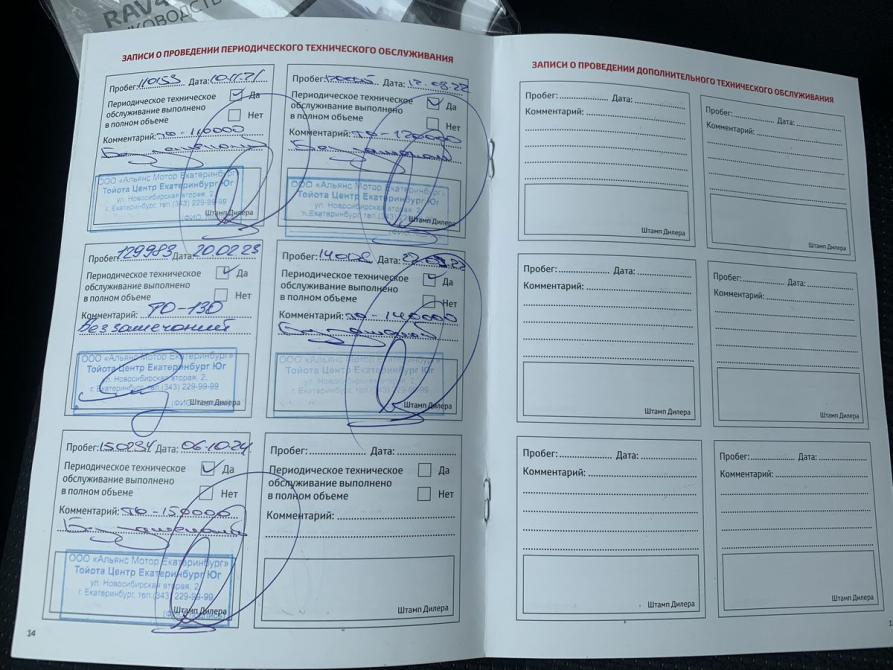 RAV4
ЗАПИСИ О ПРОВЕДЕНИИ ПЕРИОДИЧЕСКОГО ТЕХНИЧЕСКОГО ОБСЛУЖИВАНИЯ
Пробег: 110153 Дата: 10.11.21
Периодическое техническое
обслуживание выполнено
в полном объеме
Да
Нет
Комментарий: ТО-110000
Без замечаний
ООО «Альянс Мотор Екатеринбург»
Тойота Центр Екатеринбург Юг
ул. Новосибирская вторая, 2
г. Екатеринбург, тел.(343) 229-99-99
Штамп Дилера
Пробег: Дата:
Периодическое техническое
обслуживание выполнено
в полном объеме
Да
Нет
Комментарий: ТО-120000
Без замечаний
ООО «Альянс Мотор Екатеринбург»
Тойота Центр Екатеринбург Юг
ул. Новосибирская вторая, 2
г. Екатеринбург, тел.
Штамп Дилера
Пробег: 129983 Дата: 20.02.23
Периодическое техническое
обслуживание выполнено
в полном объеме
Да
Нет
Комментарий: ТО-130
Без замечаний
ООО «Альянс Мотор Екатеринбург»
Тойота Центр Екатеринбург Юг
ул. Новосибирская вторая, 2,
г. Екатеринбург, тел.(343) 229-99-99
Штамп Дилера
Пробег: Дата:
Периодическое техническое
обслуживание выполнено
в полном объеме
Да
Нет
Комментарий: ТО-140000
Без замечаний
ООО «Альянс Мотор Екатеринбург»
Тойота Центр Екатеринбург Юг
ул. Новосибирская вторая, 2,
г. Екатеринбург, тел.(343) 229-99-99
Штамп Дилера
Пробег: 150234 Дата: 06.10.24
Периодическое техническое
обслуживание выполнено
в полном объеме
Да
Нет
Комментарий: ТО-150000
Без замечаний
ООО «Альянс Мотор Екатеринбург»
Тойота Центр Екатеринбург Юг
ул. Новосибирская вторая, 2,
г. Екатеринбург, тел.(343) 229-99-99
Штамп Дилера
Пробег: Дата:
Периодическое техническое
обслуживание выполнено
в полном объеме
Да
Нет
Комментарий:
Штамп Дилера
14
ЗАПИСИ О ПРОВЕДЕНИИ ДОПОЛНИТЕЛЬНОГО ТЕХНИЧЕСКОГО ОБСЛУЖИВАНИЯ
Пробег: Дата:
Комментарий:
Штамп Дилера
Пробег: Дата:
Комментарий:
Штамп Дилера
Пробег: Дата:
Комментарий:
Штамп Дилера
Пробег: Дата:
Комментарий:
Штамп Дилера
Пробег: Дата:
Комментарий:
Штамп Дилера
Пробег: Дата:
Комментарий:
Штамп Дилера